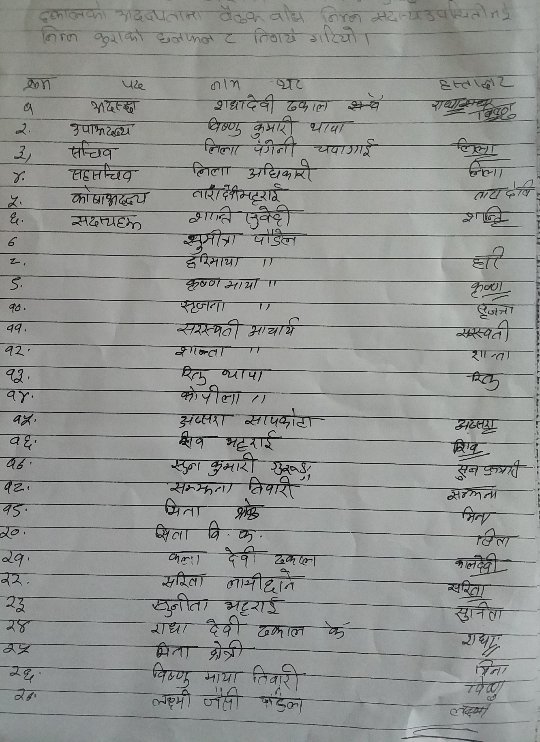 ढकालको अध्यक्षतामा बैठक बसि निम्न सदस्य उपस्थितीमा
निम्न कुराको छलफल र निर्णय गरियो।
क्रम पद नाम थर हस्ताक्षर
१ अध्यक्ष राधादेवी ढकाल
२. उपाध्यक्ष विष्णु कुमारी थापा विष्णु
३, सचिव लिला पंगेनी चपागाई लिला
४. सहसचिव लिला अधिकारी लिला
५. कोषाध्यक्ष तारादेवी भट्टराई तारा देवि
६. सदस्यहरू शान्ति सुवेदी शान्ति
७ सुमित्रा पौडेल
८. हरिमाया " हरि
९. कृष्ण माया " कृष्ण
१०. सृजना " सृजना
११. सरस्वती आचार्य सरस्वती
१२. शान्ता " शान्ता
१३. रितु थापा रितु
१४. कोपीला "
१५. अप्सरा सापकोटा अप्सरा
१६. शिव भट्टराई शिव
१७. सुन कुमारी गुरुङ सुन कुमारी
१८. सम्झना तिवारी सम्झना
१९. मिना मिना
२०. सिता वि. क. सिता
२१. कला देवी ढकाल कलादेवी
२२. सरिता लामीछाने सरिता
२३ सुनीता भट्टराई सुनिता
२४ राधा देवी ढकाल के राधा
२५ मिना क्षेत्री मिना
२६. विष्णु माया तिवारी विष्णु
२७. लक्ष्मी जैसी पौडेल लक्ष्मी